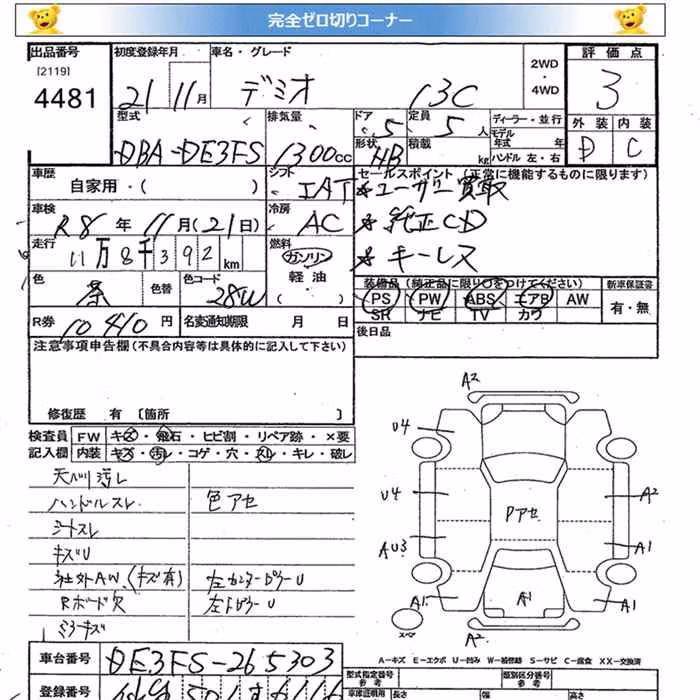 完全ゼロ切りコーナー
出品番号 初度登録年月 車名・グレード 2WD・4WD 評価点
[2119]
4481 21 11月 デミオ 13C 3
型式 排気量 ドア 定員 ディーラー・並行 外装 内装
5 5人 モデル年式 年
DBA-DE3FS 1300cc 形状 HB 積載 kg ハンドル 左・右 D C
車歴 シフト セールスポイント (正常に機能するものに限ります)
自家用・( ) IAT ★ユーザー買取
車検 冷房 ★純正CD
R8年 11月(21日) AC ★キーレス
走行 燃料
11万8千392km ガソリン
軽油・( )
色 色替 色コード 装備品(純正品に限り○をつけてください) 新車保証書
茶 28W PS PW ABS エアB AW 有・無
SR ナビ TV カワ
R券 10410円 名変通知期限 月 日 後日品
注意事項申告欄(不具合内容等は具体的に記入して下さい)
修復歴 有 [箇所 ]
検査員 FW キズ・飛石・ヒビ割・リペア跡・×要
記入欄 内装 キズ・汚レ・コゲ・穴・スレ・キレ・破レ
汚レ
ハンドルスレ 色アセ
シートスレ
キズU
社外AW(キズ有) 左センターピラーU
Rボード欠 左FピラーU
ミラーキズ
A2
U4
U4 A2
Pアセ
AU3 A1
A1 A1 A1
スペア
A2
A-キズ E-エクボ U-凹み W-補修跡 S-サビ C-腐食 XX-交換済
車台番号 DE3FS-265303
型式指定番号 類別区分番号
参考 参考
登録番号
車庫証明用 長さ 幅 高さ